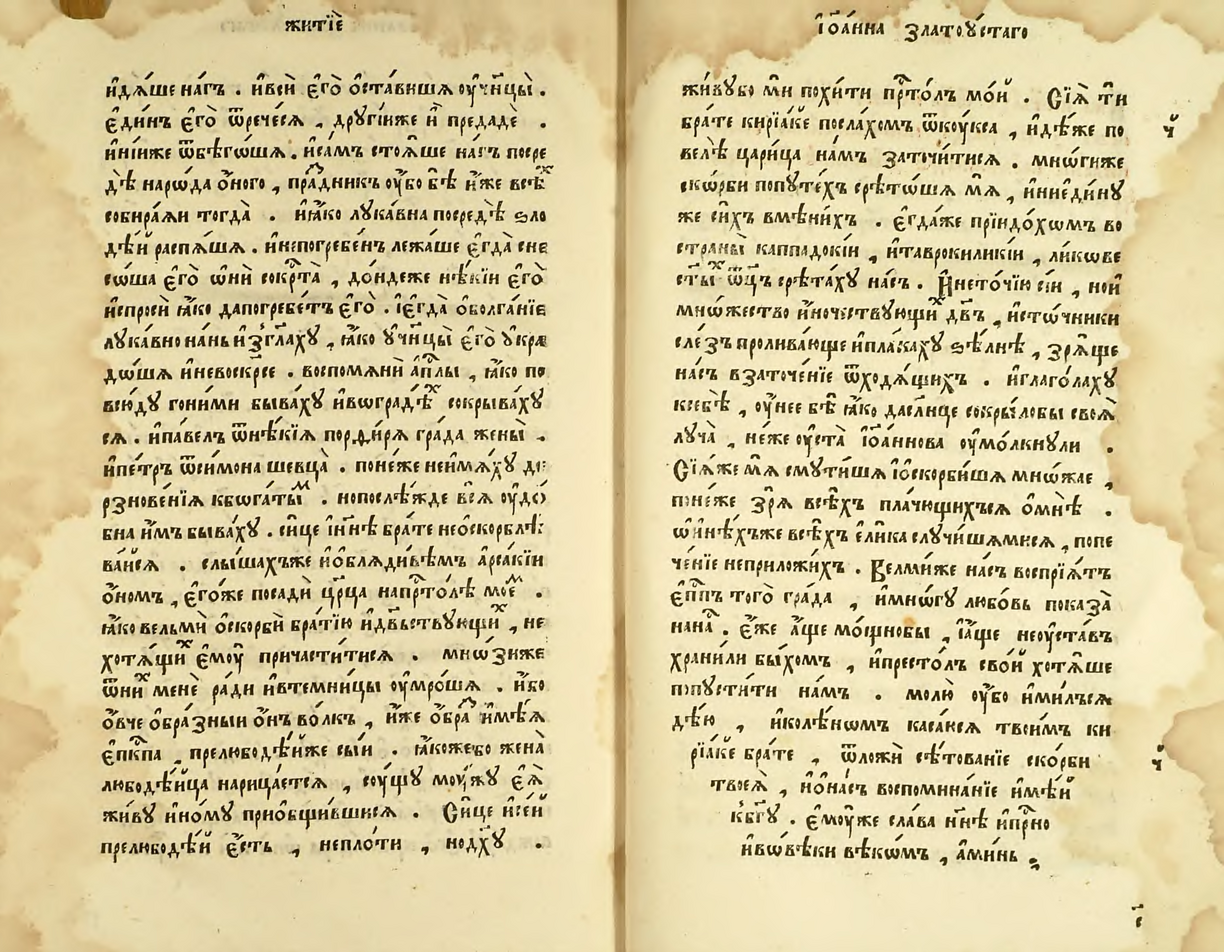 житїѐ
и҆дѧ́ше на́гъ . и҆всѝ є҆гѡ̀ ѡ҆ста́вишѧ ᲂу҆чн҃цы̀ .
є҆ди́нъ є҆го̀ ѿрече́сѧ , дрꙋгі́иже и҆ предадѐ .
и҆ні́иже ѿбѣго́шѧ . и҆са́мъ стоѧ́ше на́гъ посре
дѣ̀ наро́да ѻ҆́ного , пра́дникъ ᲂу҆́бо бѣ̀ и҆́же всѣⷯ
собира́ѧи тогда̀ . и҆ꙗ҆́ко лꙋка́вна посредѣ̀ ѕло
дѣ́й распѧ́шѧ . и҆непогребе́нъ лежа́ше є҆гда̀ сне
со́ша є҆го̀ ѡ҆нѝ сокрⷭ҇та̀ , до́ндеже нѣ́кіи є҆го̀
и҆спросѝ ꙗ҆́ко дапогребе́тъ є҆го̀ . і҆є҆гда̀ ѻ҆болга́нїе
лꙋка́вно на́нь и҆зг҃лахꙋ , ꙗ҆́ко ᲂу҆чн҃цы̀ є҆го̀ ᲂу҆кра
до́шѧ и҆невоскр҃се . воспомѧнѝ а҆пⷭ҇лы , ꙗ҆́ко по
всю́дꙋ гони́ми быва́хꙋ и҆вогра́дѣⷯ сокрыва́хꙋ
сѧ . и҆па́велъ ѿнѣ́кїѧ порфи́рѧ гра́да жены̀ .
и҆пе́тръ ѿси́мона шевца̀ . поне́же неимѧ́хꙋ де
рзнове́нїѧ кбога́тыⷨ . нопослѣ́жде всѧ̀ ᲂу҆до́
бна и҆̀мъ быва́хꙋ . си́це і҆нн҃ѣ бра́те неѻ҆скорблѣ́
ва́йсѧ . слы́шахъже и҆ѻ҆блѧди́вѣмъ а҆рса́кїи
ѻ҆́номъ , є҆го́же посадѝ цр҃ца напрⷭ҇то́лѣ моеⷨ .
ꙗ҆́ко вельмѝ ѻ҆скорбѝ бра́тїю и҆дѣ́вьствꙋющиⷯ , не
хотѧ́щиⷯ є҆мꙋ̀ причасти́тисѧ . мно́зиже
ѿниⷯ менѐ ра́ди и҆втемни́цы ᲂу҆мро́шѧ . и҆́бо
ѻ҆вчеѻ҆бра́зныи ѻ҆́нъ во́лкъ , и҆́же ѻ҆́браⷥ и҆мѣ́ѧ
є҆пⷭ҇кпа , прелюбодѣ́йже сы́и . ꙗ҆́кожебо жена̀
любодѣ́ица нарица́етсѧ , сꙋ́щꙋ мꙋ́жꙋ є҆ѧ̀
жи́вꙋ и҆но́мꙋ приѻ҆бщи́вшисѧ . Си́це и҆се́й
прелюбодѣ́й є҆́сть , непло́ти , нодх҃ꙋ .
і҆ѡ҆а́нна златоꙋ́стаго
жи́вꙋбо мѝ похи́ти прⷭ҇то́лъ мо́й . Сїѧ̀ тѝ
бра́те кирїа́ке посла́хомъ ѿкꙋ́кса , и҆дѣ́же по
велѣ̀ цари́ца на́мъ заточи́тисѧ . мно́гиже
ско́рби попꙋте́хъ срѣто́шѧ мѧ̀ , и҆ниеди́нꙋ
же си́хъ вмѣни́хъ . є҆гда́же прїидо́хомъ во
страны̀ каппадокі́и , и҆таврокиликі́и , ли́кове
ст҃ыⷯ ѿц҃ъ срѣта́хꙋ на́съ . И҆нето́чїю сі́и , ной
мно́жество и҆но́чествꙋющиⷯ дв҃ъ , и҆сто́чники
сле́зъ пролива́юще и҆пла́кахꙋ ѕѣ́лнѣ , зрѧ́ще
на́съ взаточе́нїе ѿходѧ́щихъ . и҆глаго́лахꙋ
ксебѣ̀ , ᲂу҆́нее бѣ̀ ꙗ҆́ко дасл҃нце сокры́лобы своѧ̀
лꙋча̀ , не́же ᲂу҆ста̀ і҆ѡ҆а́ннова ᲂу҆мо́лкнꙋли .
Сїѧ́же мѧ̀ смꙋти́шѧ і҆ѻ҆скорби́шѧ мно́жае ,
поне́же зрѧ̀ всѣ́хъ пла́чющихъсѧ ѻ҆мнѣ̀ .
ѡ҆и҆нѣ́хъже всѣ́хъ є҆ли́ка слꙋчи́шѧмисѧ , попе
че́нїе неприложи́хъ . Велми́же на́съ воспрїѧ́тъ
є҆пⷭ҇пъ того̀ гра́да , и҆мно́гꙋ любо́вь показа̀
нана̀ . є҆́же а҆́ще мо́щнобы , і҆а҆́ще неᲂу҆ста́въ
храни́ли бы́хомъ , и҆престо́лъ сво́й хотѧ́ше
попꙋсти́ти на́мъ . молю̀ ᲂу҆́бо и҆ми́лъсѧ
дѣ́ю , и҆колѣ́номъ каса́юсѧ твои́мъ ки
рїа́ке бра́те , ѿложѝ сѣ́тованїе ско́рби
твоеѧ̀ , и҆ѻ҆на́съ воспомина́нїе и҆мѣ́й
кбг҃ꙋ . є҆мꙋ́же сла́ва нн҃ѣ и҆прⷭ҇но
и҆вовѣ́ки вѣко́мъ , а҆ми́нь .